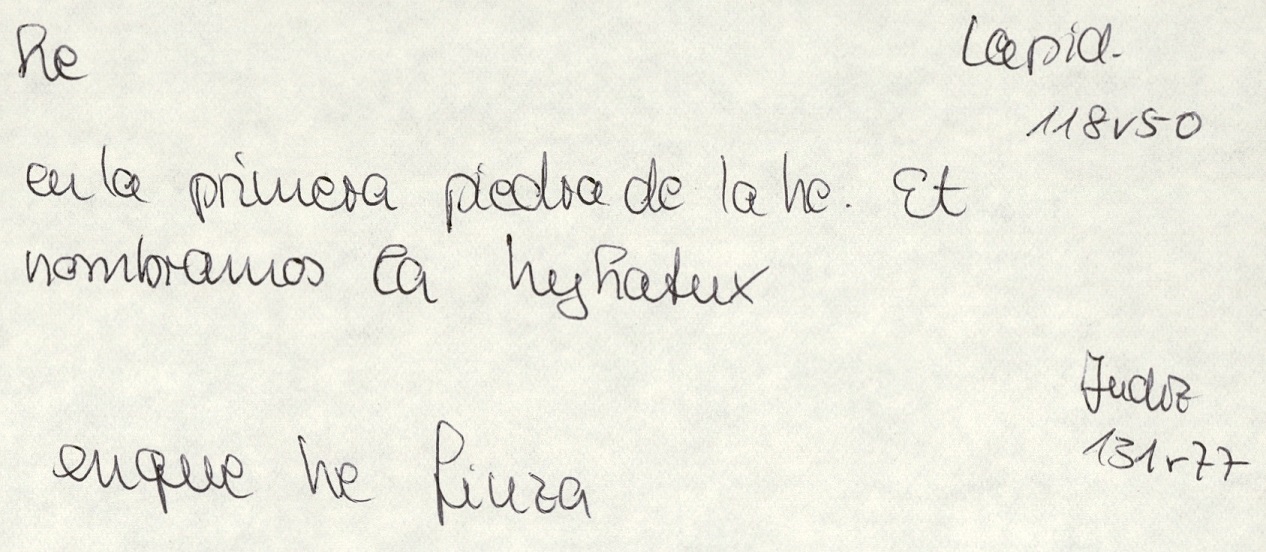 he Lapid.
118v50
en la primera piedra de la he. Et
nombramos la hyhatux
Judiz
131r77
enque he fiuza